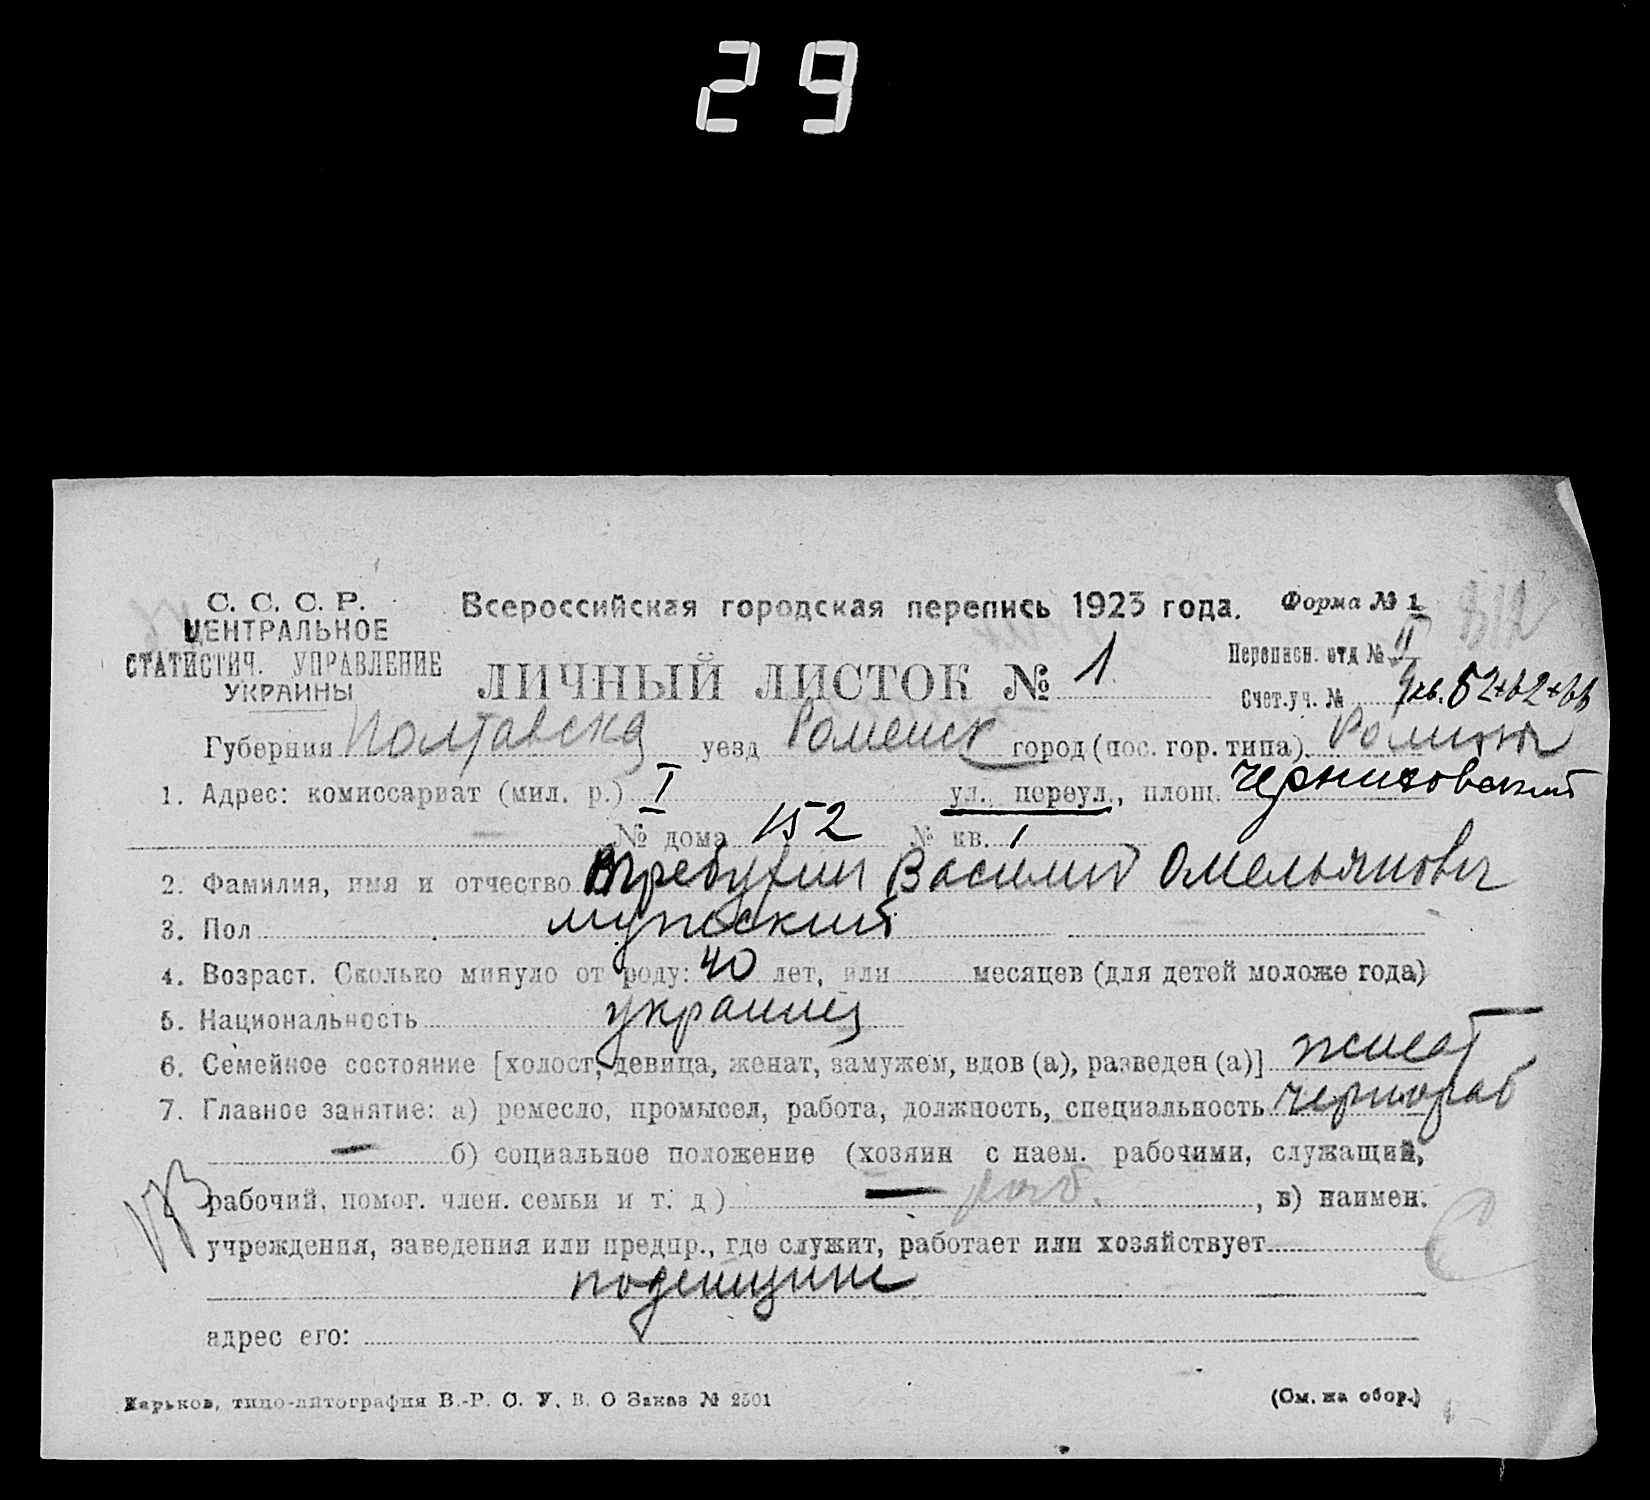 29
С. С. С. Р.
ЦЕНТРАЛЬНОЕ
СТАТИСТИЧ. УПРАВЛЕНИЕ
УКРАИНЫ
Всероссийская городская перепись 1923 года.
Форма № 1
ЛИЧНЫЙ ЛИСТОК № 1
Переписн. отд № II
Счет.уч. №
Губерния Полтавска уезд Роменск город (пос. гор. типа) Ромны
1. Адрес: комиссариат (мил. р.) I ул., переул., площ. Черниговский
№ дома 152 № кв. 1
2. Фамилия, имя и отчество Василий Омельянович
3. Пол мужский
4. Возраст. Сколько минуло от роду: 40 лет, или месяцев (для детей моложе года)
5. Национальность украинец
6. Семейное состояние [холост, девица, женат, замужем, вдов (а), разведен (а)] женат
7. Главное занятие: а) ремесло, промысел, работа, должность, специальность чернораб
— б) социальное положение (хозяин с наем. рабочими, служащий,
рабочий, помог. член. семьи и т. д.) — раб. , в) наимен.
учреждения, заведения или предпр., где служит, работает или хозяйствует
поденщине
адрес его:
Харьков, типо-литография В.-Р. С. У. В. О Заказ № 2501
(См. на обор.)